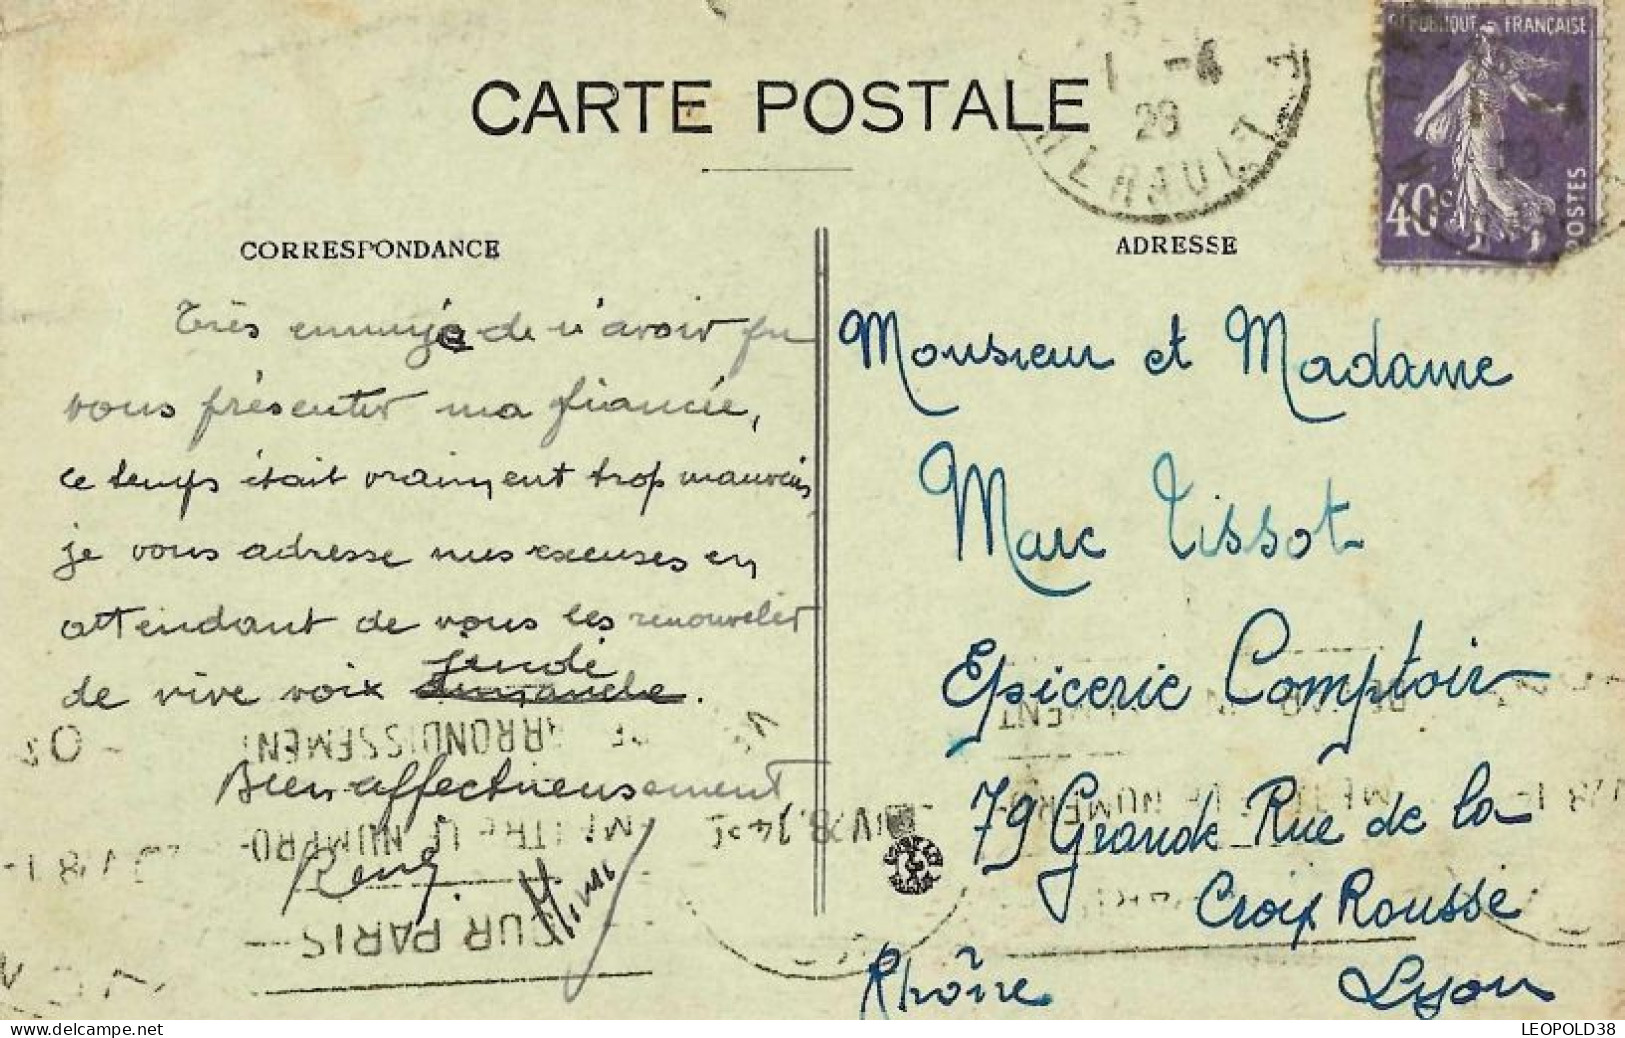 CARTE POSTALE
1 -4
28
HERAULT
REPUBLIQUE FRANÇAISE
40c
POSTES
CORRESPONDANCE
Très ennuyé de n'avoir pu
vous présenter ma fiancée,
ce temps était vraiment trop mauvais
je vous adresse mes excuses en
attendant de vous les renouveler
jeudi
de vive voix dimanche.
Bien affectueusement
René
ARRONDISSEMENT
METTRE LE NUMERO-
SUR PARIS
ADRESSE
Monsieur et Madame
Marc Tissot
Epicerie Comptoir
79 Grande Rue de la
Croix Rousse
Rhône Lyon
www.delcampe.net
LEOPOLD38